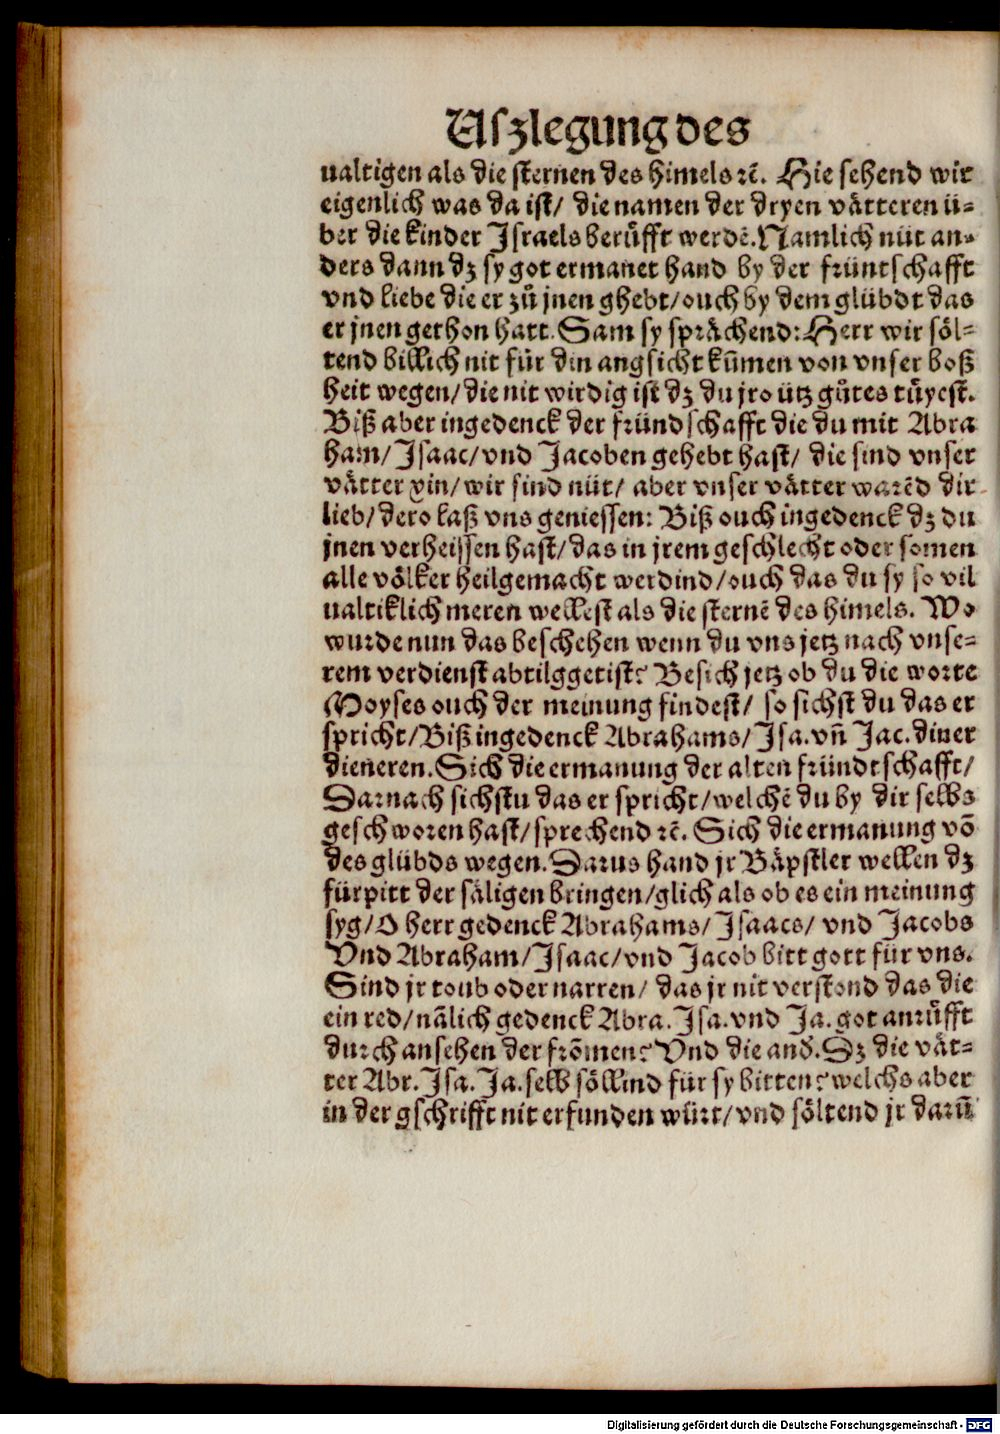 Uſzlegung des
ualtigen als die ſternen des himels ꝛc̄. Hie ſehend wir
eigenlich was da iſt/ die namen der dryen våtteren ü⸗
ber die kinder Iſraels berůfft werdē. Namlich nüt an⸗
ders dann dz ſy got ermanet hand by der früntſchafft
vnd liebe die er zů jnen ghebt/ ouch by dem glübdt das
er jnen gethon hatt. Sam ſy ſpråchend: Herr wir ſöl⸗
tend billich nit für din angſicht kūmen von vnſer boß
heit wegen/ die nit wirdig iſt dz du jro ütz gůtes tůyeſt.
Biß aber ingedenck der fründſchafft die du mit Abra
ham/ Iſaac/ vnd Jacoben gehebt haſt/ die ſind vnſer
våtter xin/ wir ſind nüt/ aber vnſer våtter warēd dir
lieb/ dero laß vns genieſſen: Biß ouch ingedenck dz du
jnen verheiſſen haſt/ das in jrem geſchlecht oder ſomen
alle völker heilgemacht werdind/ ouch das du ſy ſo vil
ualtiklich meren welleſt als die ſternē des himels. Wo
wurde nun das beſchehen wenn du vns jetz nach vnſe⸗
rem verdienſt abtilggetiſt? Beſich jetz ob du die worte
Moyſes ouch der meinung findeſt/ ſo ſichſt du das er
ſpricht/ Biß ingedenck Abrahams/ Iſa. vñ Jac. diner
dieneren. Sich die ermanung der alten fründtſchafft/
Darnach ſichſtu das er ſpricht/ welchē du by dir ſelbs
geſchworen haſt/ ſprechend ꝛc̄. Sich die ermanung vō
des glübds wegen. Darus hand jr Båpſtler wellen dz
fürpitt der såligen bringen/ glich als ob es ein meinung
ſyg/ O herr gedenck Abrahams/ Iſaacs/ vnd Jacobs
Vnd Abraham/ Iſaac/ vnd Jacob bitt gott für vns.
Sind jr toub oder narren/ das jr nit verſtond das die
ein red/ nālich gedenck Abra. Iſa. vnd Ja. got anrůfft
durch anſehen der frōmen? Vnd die and̄. Dz die våt⸗
ter Abr. Iſa. Ja. ſelb ſöllind für ſy bitten? welchs aber
in der gſchrifft nit erfunden würt/ vnd ſöltend jr darū
Digitalisierung gefördert durch die Deutsche Forschungsgemeinschaft - DFG